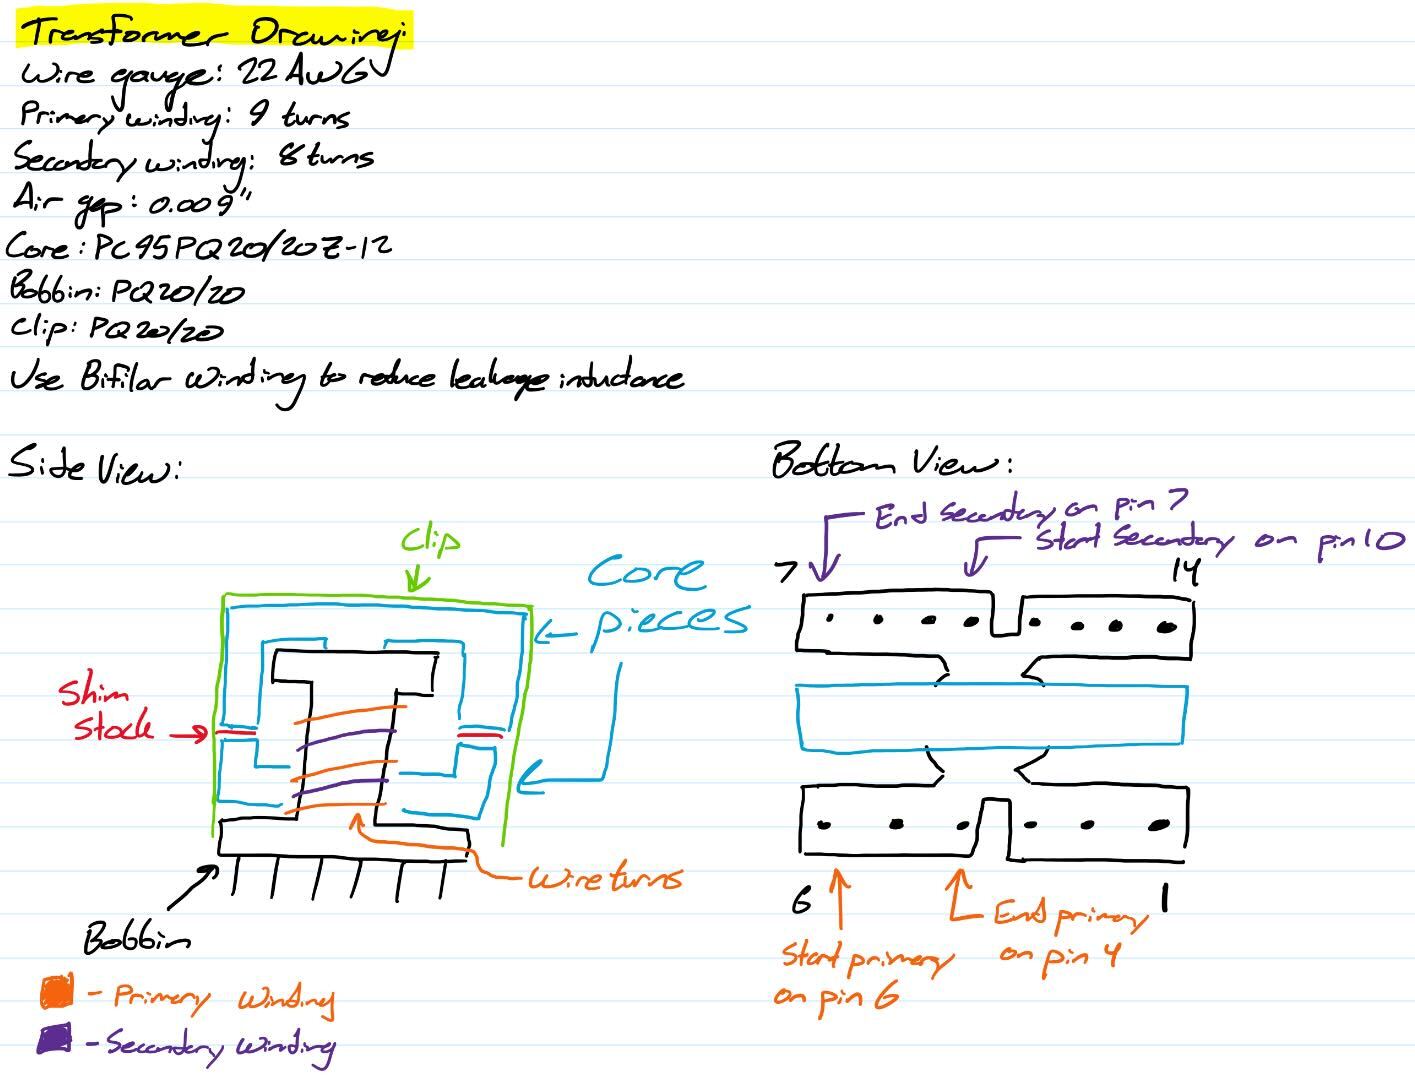 Transformer Drawing:
Wire gauge: 22 AWG
Primary winding: 9 turns
Secondary winding: 8 turns
Air gap: 0.009"
Core: PC95PQ20/20Z-12
Bobbin: PQ20/20
Clip: PQ20/20
Use Bifilar winding to reduce leakage inductance
Side View:
Bottom View:
Clip
Core
pieces
Shim
stock
Wire turns
Bobbin
- Primary winding
- Secondary winding
End secondary on pin 7
Start secondary on pin 10
7
14
6
1
Start primary
on pin 6
End primary
on pin 4